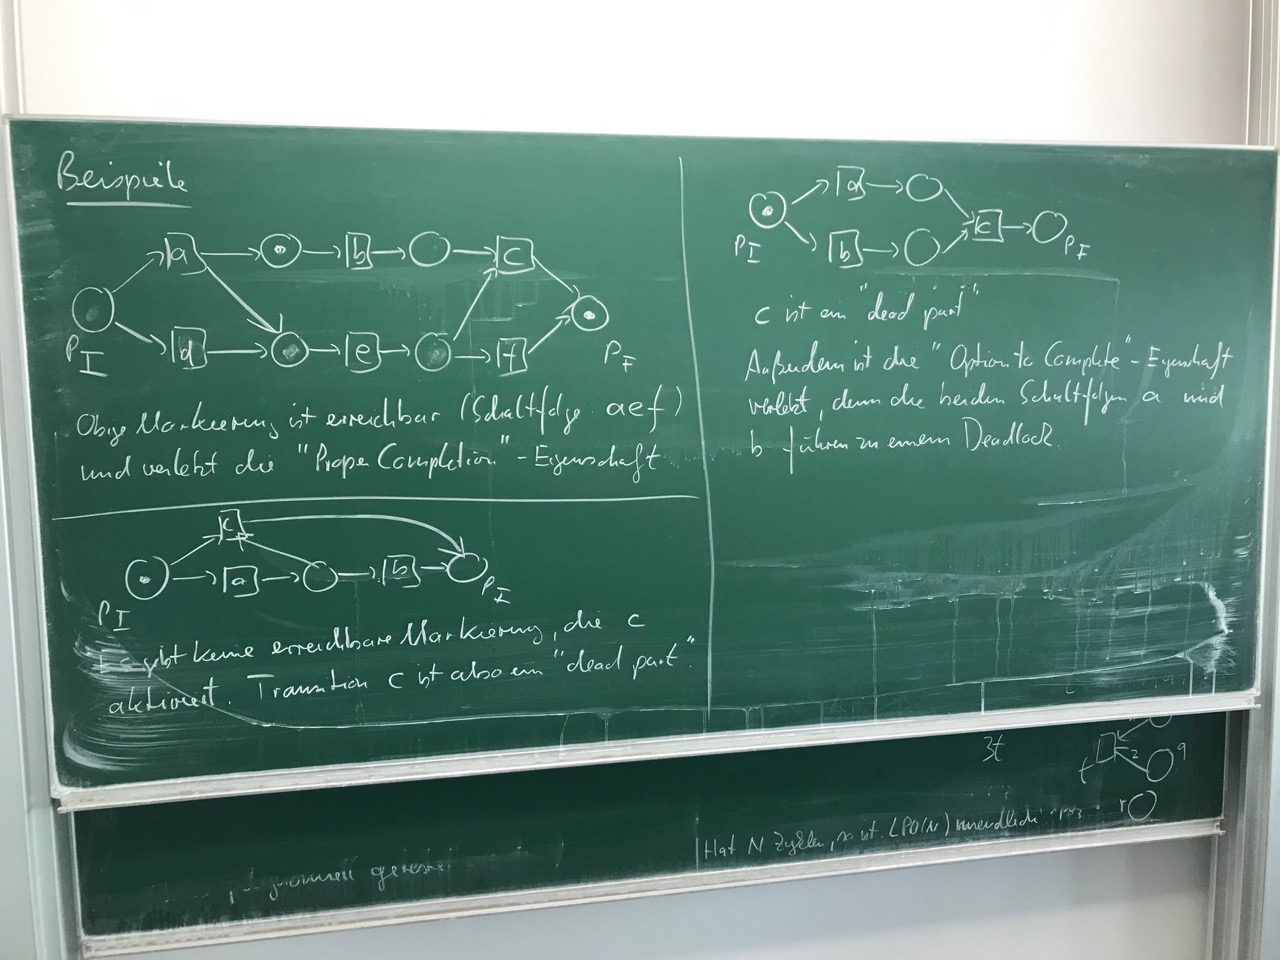 Beispiele
a b c
d e f
P_I P_F
Obige Markierung ist erreichbar (Schaltfolge aef)
und verletzt die "Proper Completion"-Eigenschaft
c
a b
P_I P_I
Es gibt keine erreichbare Markierung, die c
aktiviert. Transition c ist also ein "dead part".
a
c
b
P_I P_F
c ist ein "dead part"
Außerdem ist die "Option to Complete"-Eigenschaft
verletzt, denn die beiden Schaltfolgen a und
b führen zu einem Deadlock.
3t
t 2 q
r
Hat N Zyklen, so ist LPO(N) unendlich